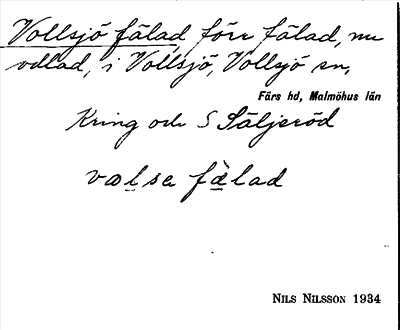 Vollsjö fälad, förr fälad, nu
odlad, i Vollsjö, Vollsjö sn,
Färs hd, Malmöhus län
Kring och S Säljeröd
valse fälad
NILS NILSSON 1934